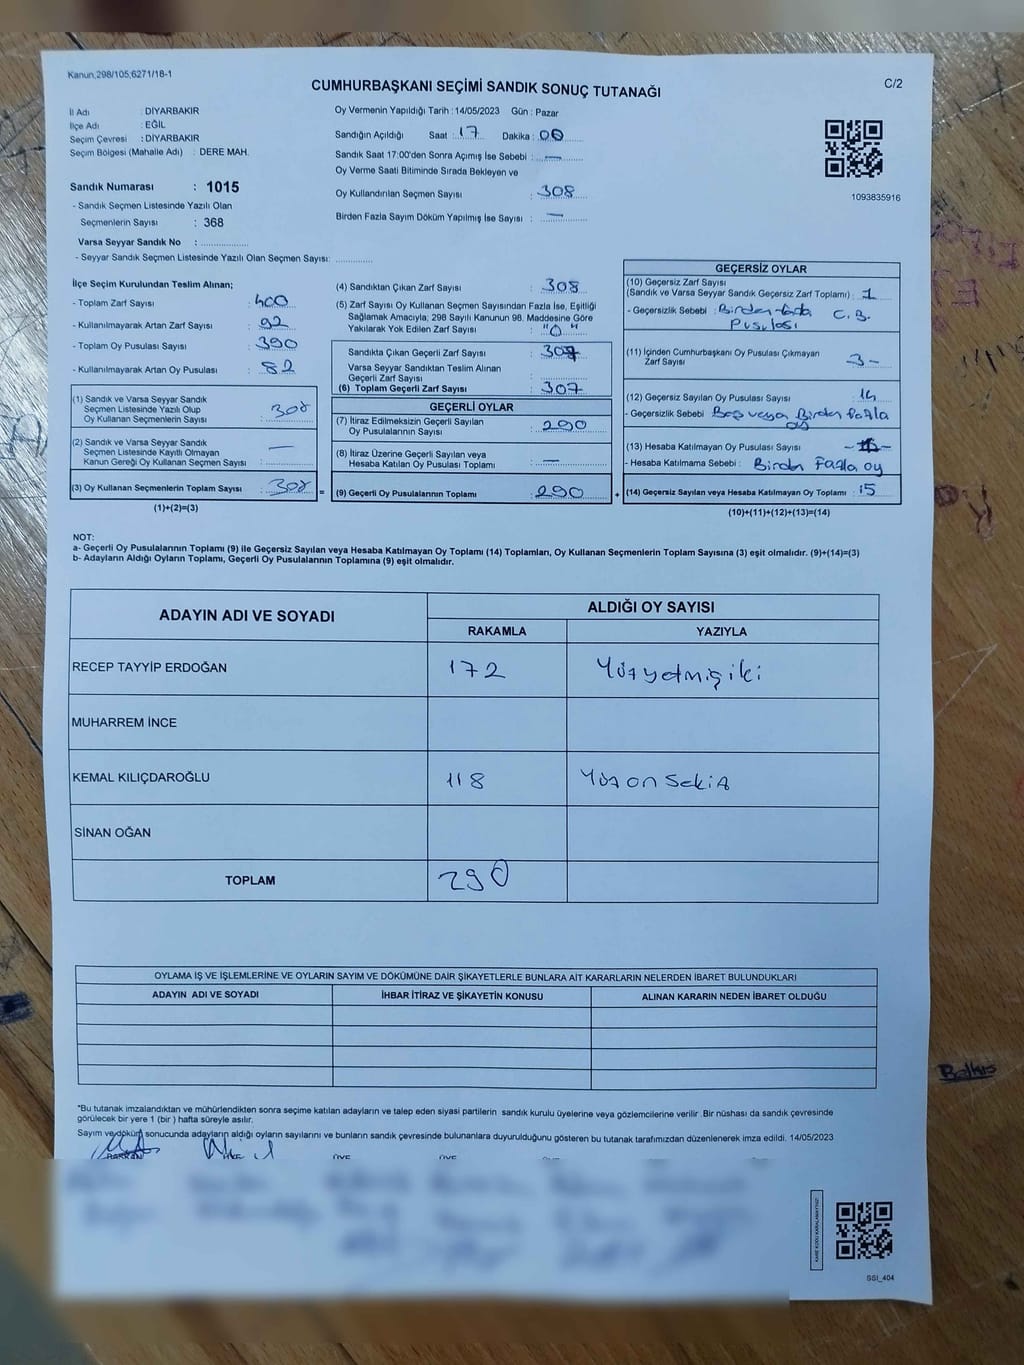 Kanun,298/105,6271/18-1
C/2
CUMHURBAŞKANI SEÇİMİ SANDIK SONUÇ TUTANAĞI
İl Adı : DİYARBAKIR
İlçe Adı : EĞİL
Seçim Çevresi : DİYARBAKIR
Seçim Bölgesi (Mahalle Adı) : DERE MAH.
Sandık Numarası : 1015
- Sandık Seçmen Listesinde Yazılı Olan
Seçmenlerin Sayısı : 368
Varsa Seyyar Sandık No : ..............
- Seyyar Sandık Seçmen Listesinde Yazılı Olan Seçmen Sayısı: ............
Oy Vermenin Yapıldığı Tarih : 14/05/2023 Gün : Pazar
Sandığın Açıldığı Saat : 17 Dakika : 00
Sandık Saat 17:00'den Sonra Açımış İse Sebebi : —
Oy Verme Saati Bitiminde Sırada Bekleyen ve
Oy Kullandırılan Seçmen Sayısı : 308
Birden Fazla Sayım Döküm Yapılmış İse Sayısı : —
1093835916
İlçe Seçim Kurulundan Teslim Alınan;
- Toplam Zarf Sayısı : 400
- Kullanılmayarak Artan Zarf Sayısı : 92
- Toplam Oy Pusulası Sayısı : 390
- Kullanılmayarak Artan Oy Pusulası : 82
(1) Sandık ve Varsa Seyyar Sandık
Seçmen Listesinde Yazılı Olup
Oy Kullanan Seçmenlerin Sayısı : 308
(2) Sandık ve Varsa Seyyar Sandık
Seçmen Listesinde Kayıtlı Olmayan
Kanun Gereği Oy Kullanan Seçmen Sayısı : —
(3) Oy Kullanan Seçmenlerin Toplam Sayısı : 308 =
(1)+(2)=(3)
(4) Sandıktan Çıkan Zarf Sayısı : 308
(5) Zarf Sayısı Oy Kullanan Seçmen Sayısından Fazla İse, Eşitliği
Sağlamak Amacıyla; 298 Sayılı Kanunun 98. Maddesine Göre
Yakılarak Yok Edilen Zarf Sayısı : "0"
Sandıkta Çıkan Geçerli Zarf Sayısı : 307
Varsa Seyyar Sandıktan Teslim Alınan
Geçerli Zarf Sayısı :
(6) Toplam Geçerli Zarf Sayısı : 307
GEÇERLİ OYLAR
(7) İtiraz Edilmeksizin Geçerli Sayılan
Oy Pusulalarının Sayısı : 290
(8) İtiraz Üzerine Geçerli Sayılan veya
Hesaba Katılan Oy Pusulası Toplamı : —
(9) Geçerli Oy Pusulalarının Toplamı : 290 +
GEÇERSİZ OYLAR
(10) Geçersiz Zarf Sayısı
(Sandık ve Varsa Seyyar Sandık Geçersiz Zarf Toplamı) : 1
- Geçersizlik Sebebi : Birden fazla C.B.
Pusulası
(11) İçinden Cumhurbaşkanı Oy Pusulası Çıkmayan
Zarf Sayısı : 3-
(12) Geçersiz Sayılan Oy Pusulası Sayısı :
- Geçersizlik Sebebi Boş veya Birden fazla
oy
(13) Hesaba Katılmayan Oy Pusulası Sayısı :
- Hesaba Katılmama Sebebi : Birden Fazla oy
(14) Geçersiz Sayılan veya Hesaba Katılmayan Oy Toplamı : 15
(10)+(11)+(12)+(13)=(14)
NOT:
a- Geçerli Oy Pusulalarının Toplamı (9) ile Geçersiz Sayılan veya Hesaba Katılmayan Oy Toplamı (14) Toplamları, Oy Kullanan Seçmenlerin Toplam Sayısına (3) eşit olmalıdır. (9)+(14)=(3)
b- Adayların Aldığı Oyların Toplamı, Geçerli Oy Pusulalarının Toplamına (9) eşit olmalıdır.
ADAYIN ADI VE SOYADI
ALDIĞI OY SAYISI
RAKAMLA YAZIYLA
RECEP TAYYİP ERDOĞAN 172 Yüzyetmişiki
MUHARREM İNCE
KEMAL KILIÇDAROĞLU 118 Yüz on sekiz
SİNAN OĞAN
TOPLAM 290
OYLAMA İŞ VE İŞLEMLERİNE VE OYLARIN SAYIM VE DÖKÜMÜNE DAİR ŞİKAYETLERLE BUNLARA AİT KARARLARIN NELERDEN İBARET BULUNDUKLARI
ADAYIN ADI VE SOYADI İHBAR İTİRAZ VE ŞİKAYETİN KONUSU ALINAN KARARIN NEDEN İBARET OLDUĞU
*Bu tutanak imzalandıktan ve mühürlendikten sonra seçime katılan adayların ve talep eden siyasi partilerin sandık kurulu üyelerine veya gözlemcilerine verilir .Bir nüshası da sandık çevresinde
görülecek bir yere 1 (bir ) hafta süreyle asılır.
Sayım ve döküm sonucunda adayların aldığı oyların sayılarını ve bunların sandık çevresinde bulunanlara duyurulduğunu gösteren bu tutanak tarafımızdan düzenlenerek imza edildi. 14/05/2023
BAŞKAN ÜYE ÜYE
SSI_404